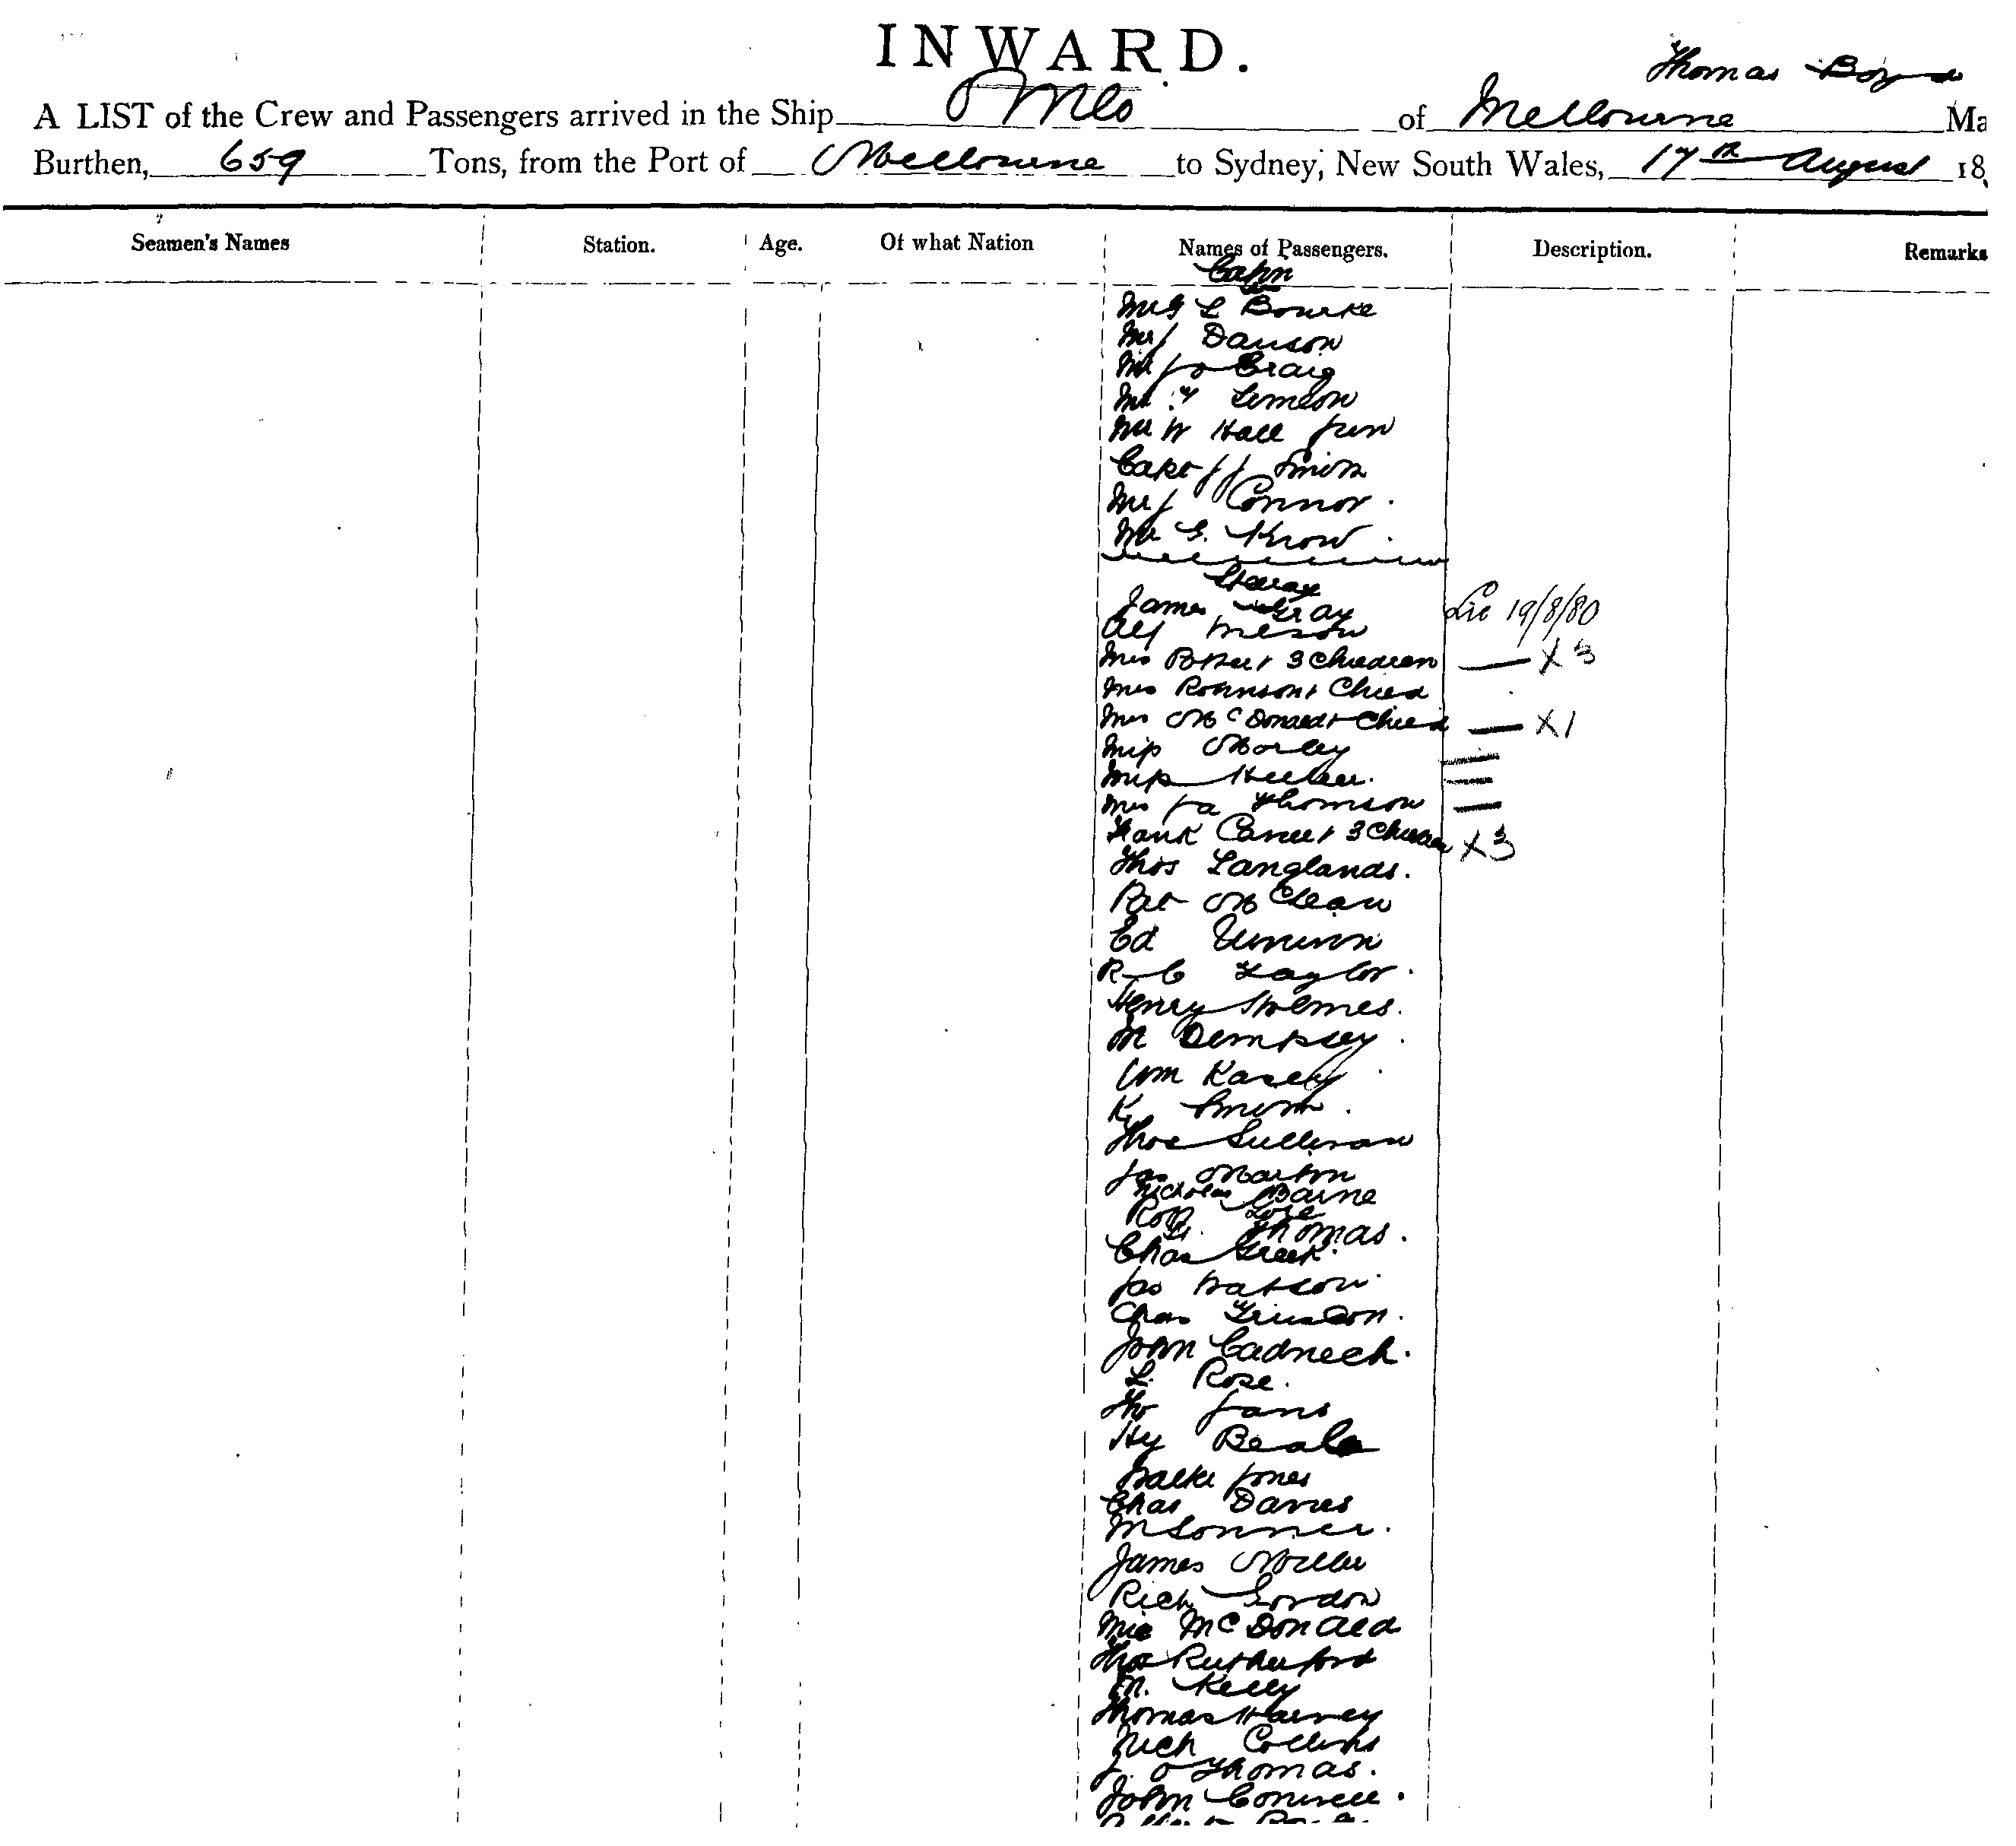 INWARD.
Thomas Boyd
A LIST of the Crew and Passengers arrived in the Ship of Melbourne Ma
Burthen, 659 Tons, from the Port of Melbourne to Sydney, New South Wales, 17th August 18
Seamen's Names Station. Age. Of what Nation Names of Passengers. Description. Remarks
Cabin
L Bourke
Mr J Dawson
Craig
Mr
Mr W Hall Jun
Capt J J Smith
Mr J Connor.
Mr G.
James Gray Lic 19/8/80
Alf
Mrs 3 Children — X 3
Mrs Robinson & Child
Mrs McDonald & Child — X 1
Miss Morley
Miss
Mrs Thomson
Frank 3 Children X 3
Thos Langlands.
Pat McClean
Ed
R C Taylor.
Henry Holmes.
M Dempsey.
Wm Kasey
K Smith.
Thos Sullivan
Jas Martin
Nicholas Barne
Robt
Thomas.
Chas Greek.
Jas Watson.
Chas
John Cadneech.
L. Rose.
Thos Jans
Hy Beale
Walter Jones
Chas Davies
M
James Miller
Rich Gordon
Mic McDonald
Thos Rutherford
M. Kelly
Thomas Harvey
Rich Collins
J. O Thomas.
John